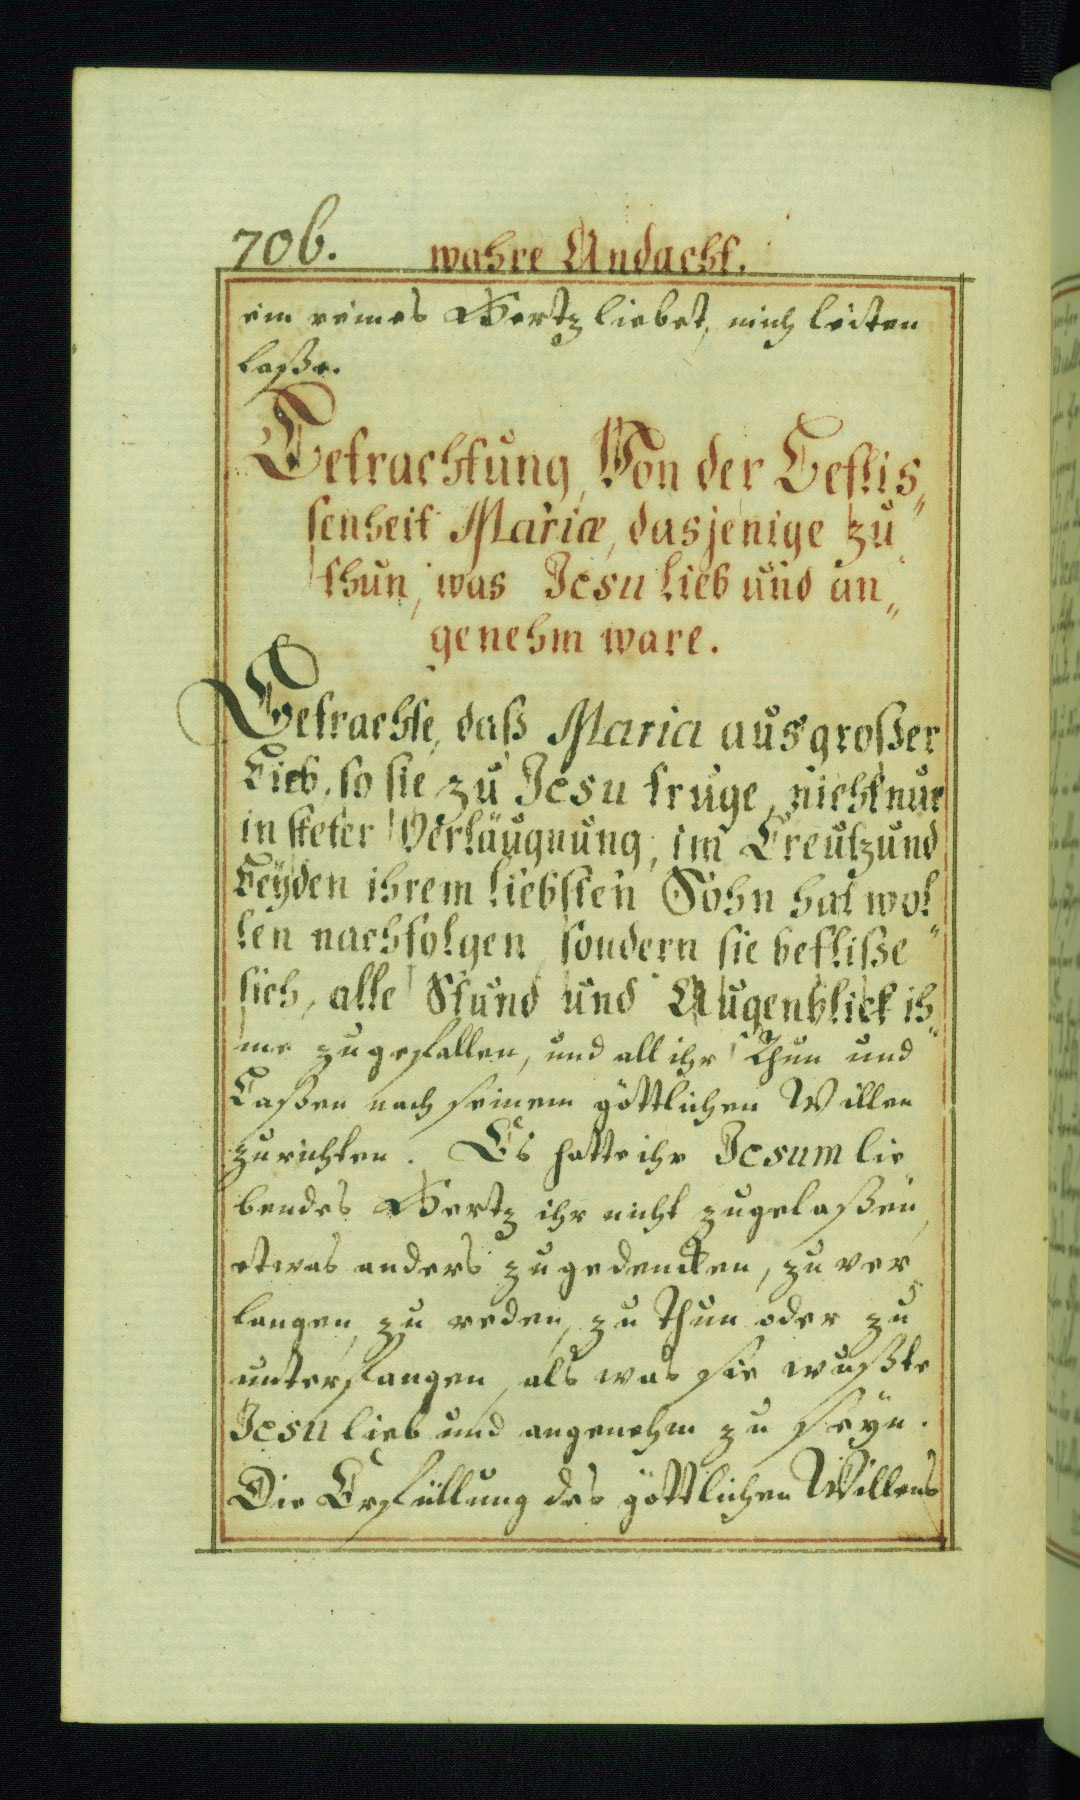 706. wahre Andacht.
ein reines Hertz liebet, mich leiten
laße.
Betrachtung, Von der Beflis„
senheit Mariæ, dasjenige zu
thun, was Jesu lieb und an„
genehm ware.
Betrachte, daß Maria aus großer
Lieb, so sie zu Jesu truge, nicht nur
in steter Verläugnung, im Creutz und
Leyden ihrem liebsten Sohn hat wol„
len nachfolgen, sondern sie befliße
sich, alle Stund und Augenblick ih„
me zugefallen, und all ihr Thun und
Laßen nach seinem göttlichen Willen
zurichten. Es hatte ihr Jesum lie
bendes Hertz ihr nicht zugelaßen,
etwas anders zugedencken, zu ver
langen, zu reden, zu thun oder zu
unterfangen, als was sie wußte
Jesu lieb und angenehm zu seyn.
Die Erfüllung des göttlichen Willens